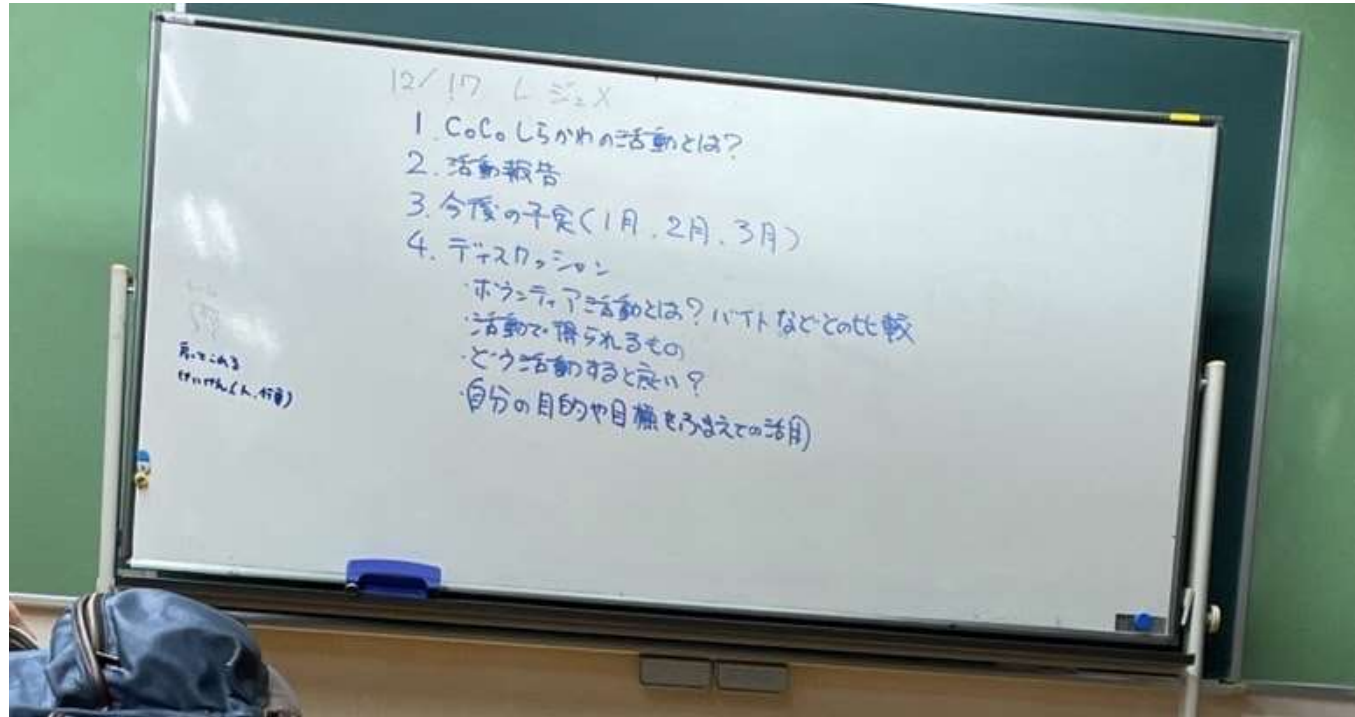 12/17 レジュメ
1. CoCoしらかわの活動とは?
2. 活動報告
3. 今後の予定(1月、2月、3月)
4. ディスカッション
・ボランティア活動とは?バイトなどとの比較
・活動で得られるもの
・どう活動すると良い?
・自分の目的や目標をふまえての活用
けいけん(人、行動)